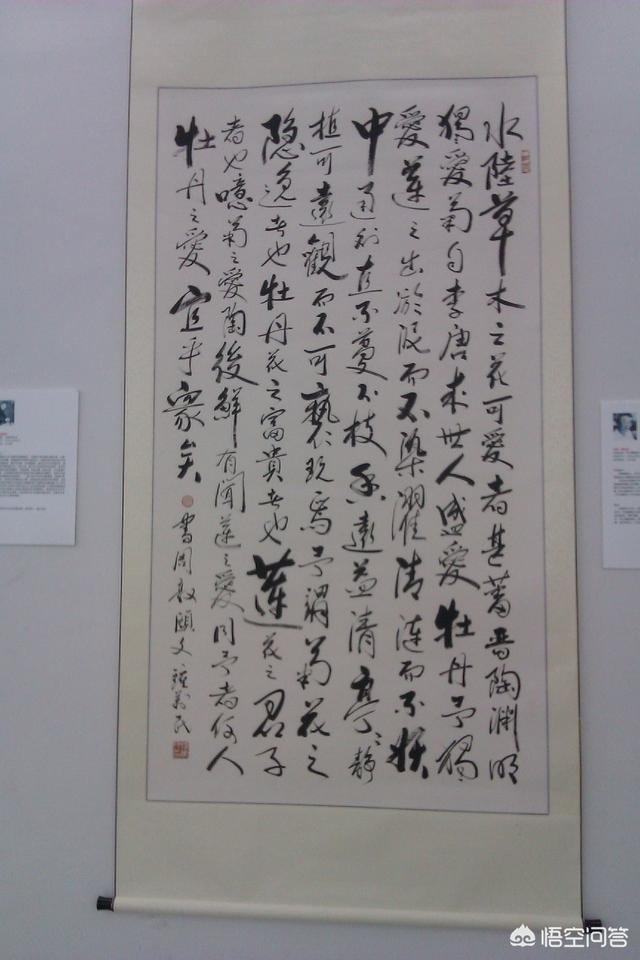 水陸草木之花可愛者甚蕃晋陶渊明
獨愛菊自李唐来世人盛愛牡丹予獨
愛蓮之出於泥而不染濯清涟而不妖
中通外直不蔓不枝香遠益清亭亭静
植可遠觀而不可褻玩焉予謂菊花之
隐逸者也牡丹花之富貴者也蓮花之君子
者也噫菊之愛陶後鮮有聞蓮之愛同予者何人
牡丹之愛宜乎衆矣
書周敦頤文
悟空问答